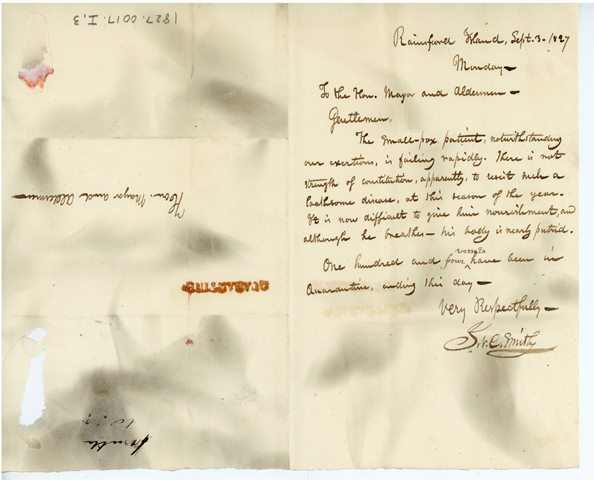 Rainsford Island, Sept. 3 - 1827
Monday -
To the Hon. Mayor and Aldermen -
Gentlemen,
The small-pox patient, notwithstanding
our exertions, is failing rapidly. There is not
strength of constitution, apparently, to resist such a
loathsome disease, at this season of the year.
It is now difficult to give him nourishment, and
although he breathes - his body is nearly putrid.
One hundred and four vessels have been in
Quarantine, ending this day -
Very Respectfully -
S. Smith
1827.0017.I,3
Hon. Mayor and Aldermen
QUARANTINE